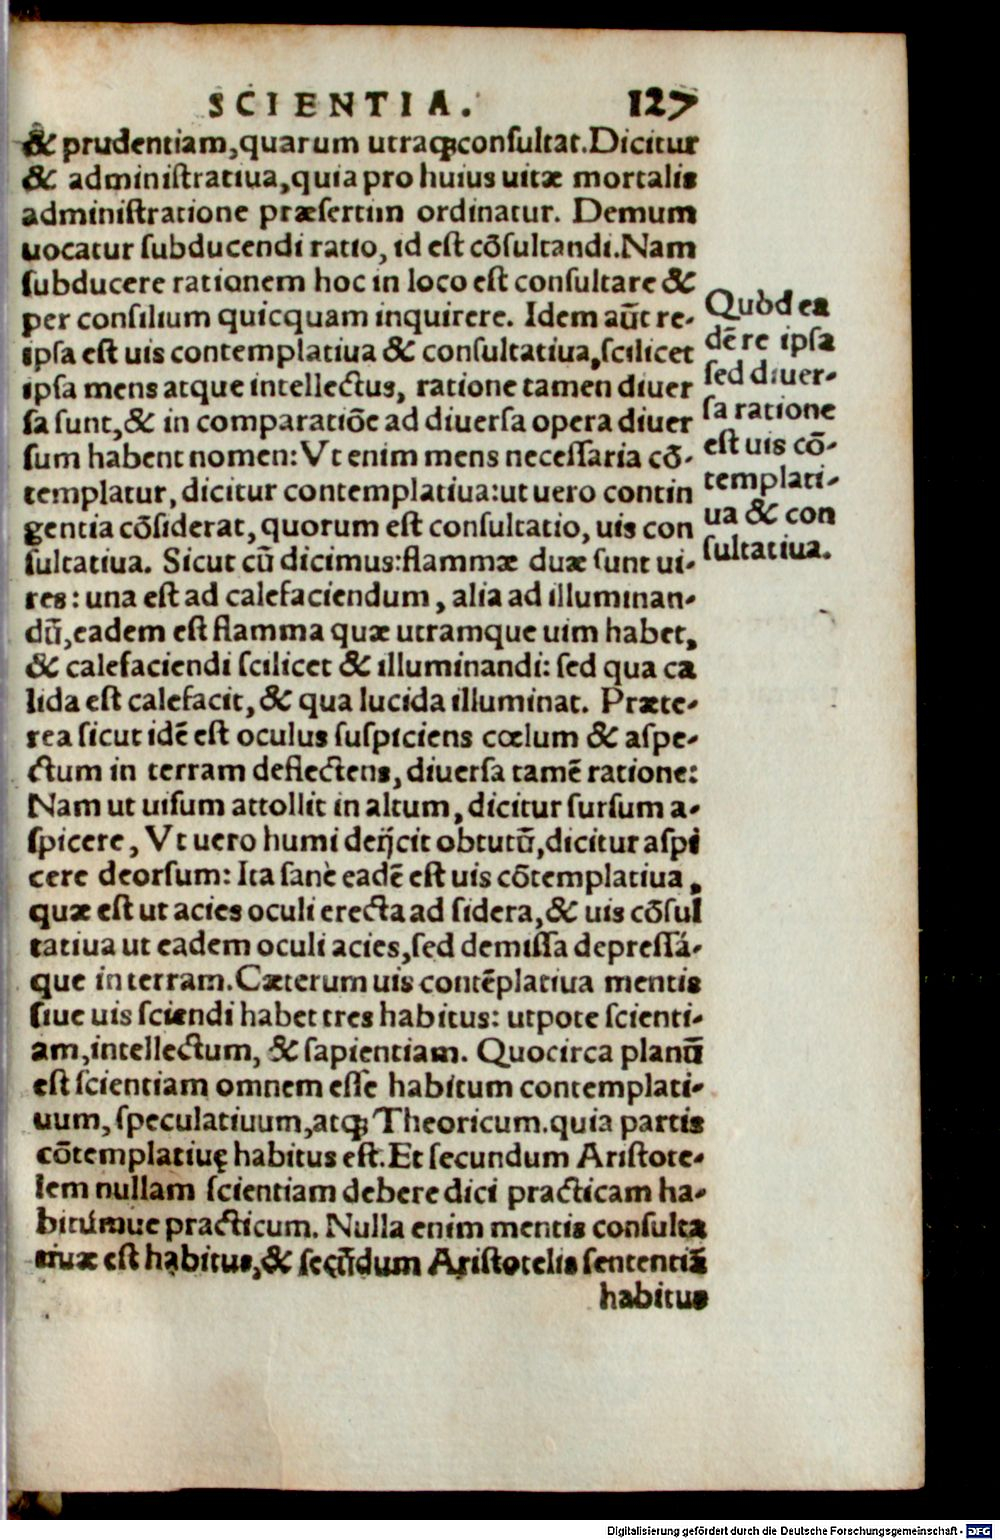 SCIENTIA. 127
& prudentiam, quarum utraqꝫ consultat. Dicitur
& administratiua, quia pro huius uitæ mortalis
administratione præsertim ordinatur. Demum
uocatur subducendi ratio, id est cōsultandi. Nam
subducere rationem hoc in loco est consultare &
per consilium quicquam inquirere. Idem aūt re-
ipsa est uis contemplatiua & consultatiua, scilicet
ipsa mens atque intellectus, ratione tamen diuer
sa sunt, & in comparatiōe ad diuersa opera diuer
sum habent nomen: Vt enim mens necessaria cō-
templatur, dicitur contemplatiua: ut uero contin
gentia cōsiderat, quorum est consultatio, uis con
sultatiua. Sicut cū dicimus: flammæ duæ sunt ui-
res: una est ad calefaciendum, alia ad illuminan-
dū, eadem est flamma quæ utramque uim habet,
& calefaciendi scilicet & illuminandi: sed qua ca
lida est calefacit, & qua lucida illuminat. Præte-
rea sicut idē est oculus suspiciens cœlum & aspe-
ctum in terram deflectens, diuersa tamē ratione:
Nam ut uisum attollit in altum, dicitur sursum a-
spicere, Vt uero humi deijcit obtutū, dicitur aspi
cere deorsum: Ita sanè eadē est uis cōtemplatiua,
quæ est ut acies oculi erecta ad sidera, & uis cōsul
tatiua ut eadem oculi acies, sed demissa depressá-
que in terram. Cæterum uis contēplatiua mentis
siue uis sciendi habet tres habitus: utpote scienti-
am, intellectum, & sapientiam. Quocirca planū
est scientiam omnem esse habitum contemplati-
uum, speculatiuum, atqꝫ Theoricum. quia partis
cōtemplatiuę habitus est. Et secundum Aristote-
lem nullam scientiam debere dici practicam ha-
bitumue practicum. Nulla enim mentis consulta
tiuæ est habitus, & secūdum Aristotelis sententiā
habitus
Quòd ea
dē re ipsa
sed diuer-
sa ratione
est uis cō-
templati-
ua & con
sultatiua.
Digitalisierung gefördert durch die Deutsche Forschungsgemeinschaft - DFG